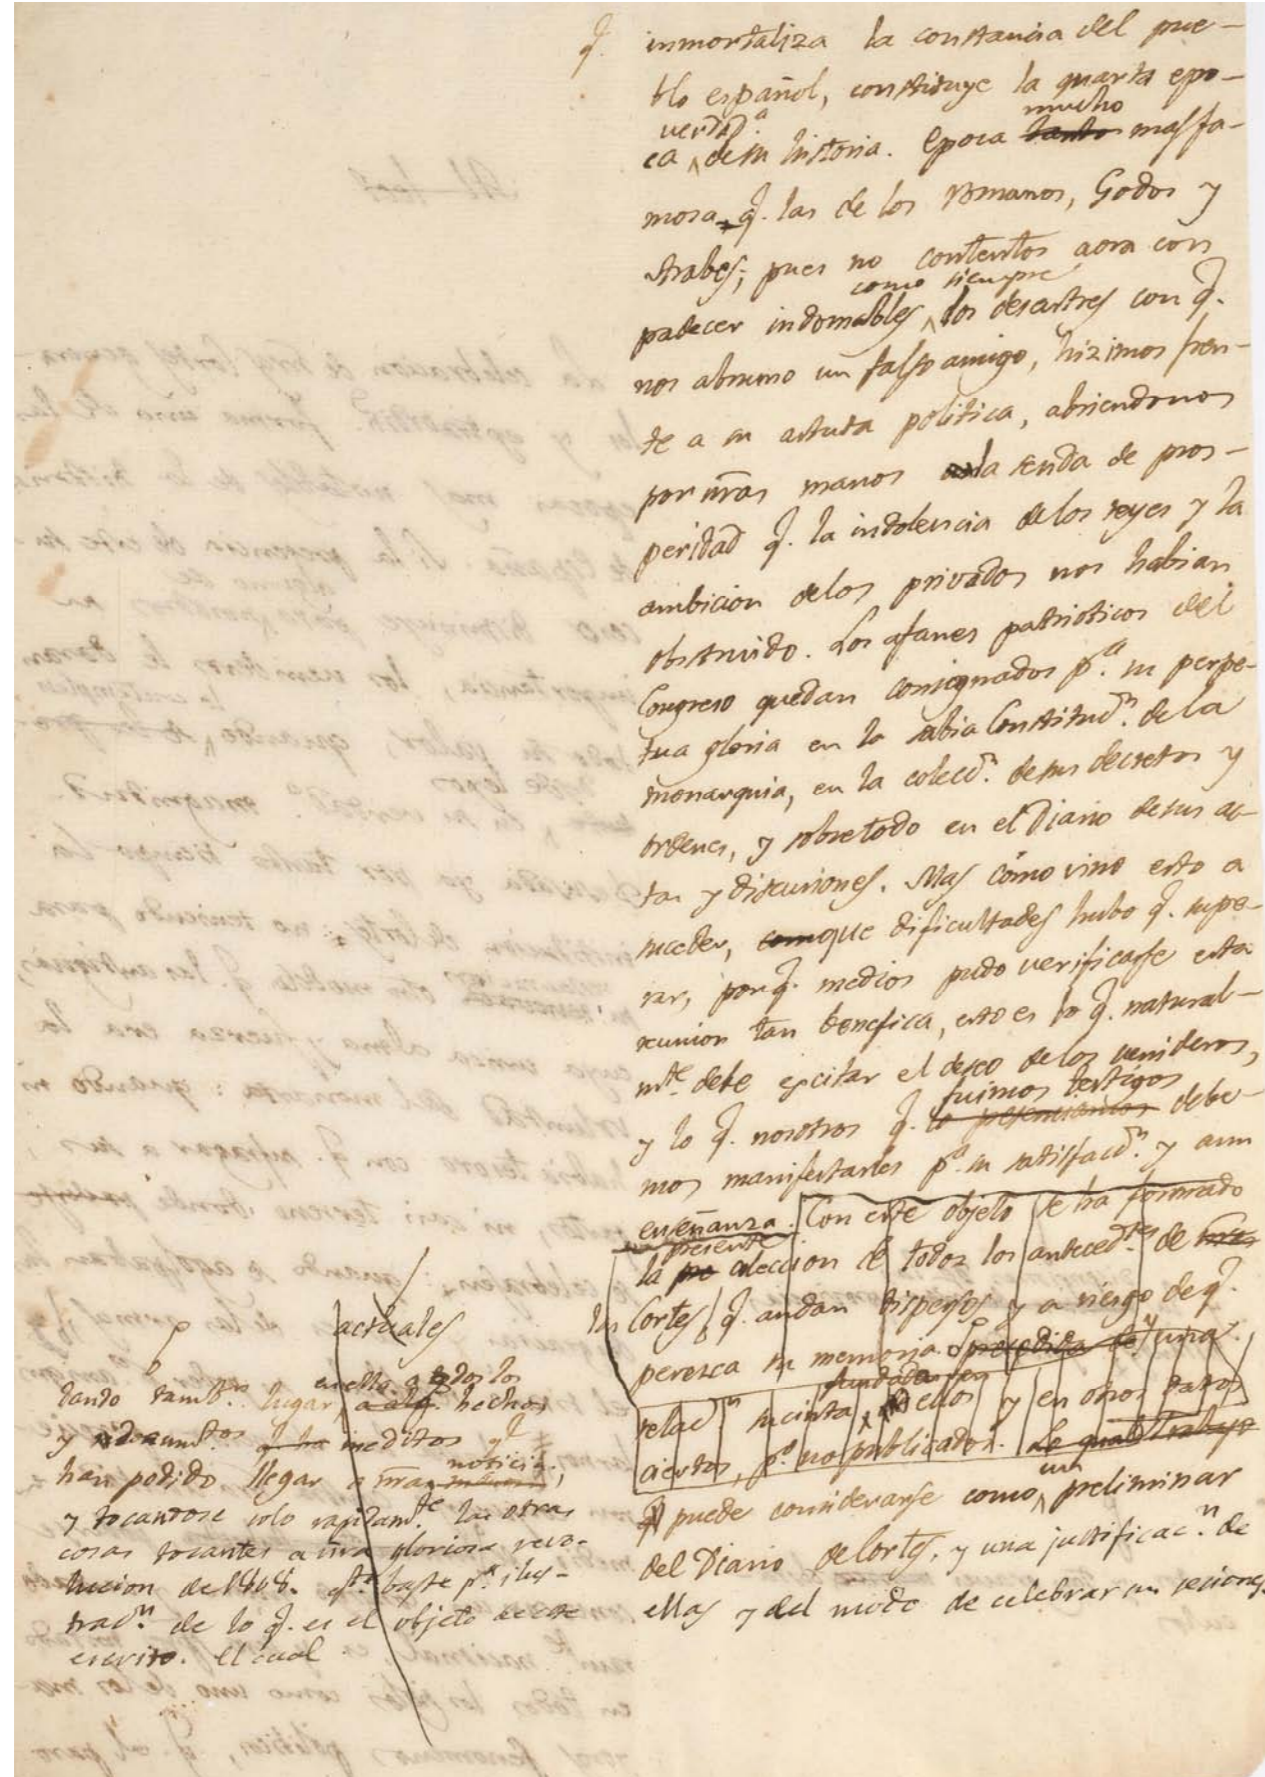 q. inmortaliza la constancia del pue-
blo español, constituye la quarta epo-
verdad.ª mucho
ca de su historia. Epoca tanto mas fa-
mosa q. las de los romanos, Godos y
Arabes; pues no contentos aora con
como siempre
padecer indomables los desastres con q.
nos abrumo un falso amigo, hizimos fren-
te a su astuta politica, abriendonos
por nras manos la senda de pros-
peridad q. la indolencia de los reyes y la
ambicion de los privados nos habian
obstruido. Los afanes patrioticos del
Congreso quedan consignados p.ª su perpe-
tua gloria en la sabia Constituc.n de la
monarquia, en la colecc.n de sus decretos y
ordenes, y sobre todo en el Diario de sus ac-
tas y discusiones. Mas cómo vino esto a
suceder, com que dificultades hubo q. supe-
rar, por q. medios pudo verificarse esta
reunion tan benefica, esto es lo q. natural-
m.te debe escitar el deseo de los venideros,
fuimos testigos
y lo q. nosotros q. lo presenciamos debe-
mos manifestarles p.ª su satisfacc.n y aun
enseñanza. Con este objeto se ha formado
presente
la pre coleccion de todos los anteced.tes de
las Cortes, q. andan dispersos y a riesgo de q.
peresca su memoria. precedida de y una
fundada en
relac.n sucinta ellos y en otros datos
ciertos, p.º no publicados. Le qual trabajo
un
puede considerarse como preliminar
del Diario de Cortes, y una justificac.n de
ellas y del modo de celebrar sus seciones.
actuales
en ella a todos los
dando tamb.n lugar a alg. hechos
y docum.tos q ha ineditos q.
noticia,
han podido llegar a nra
y tocandose solo rapidam.te las otras
cosas tocantes a nra gloriosa revo-
lucion de 1808. baste p.ª ilus-
trac.n de lo q. es el objeto de este
escrito. El cual